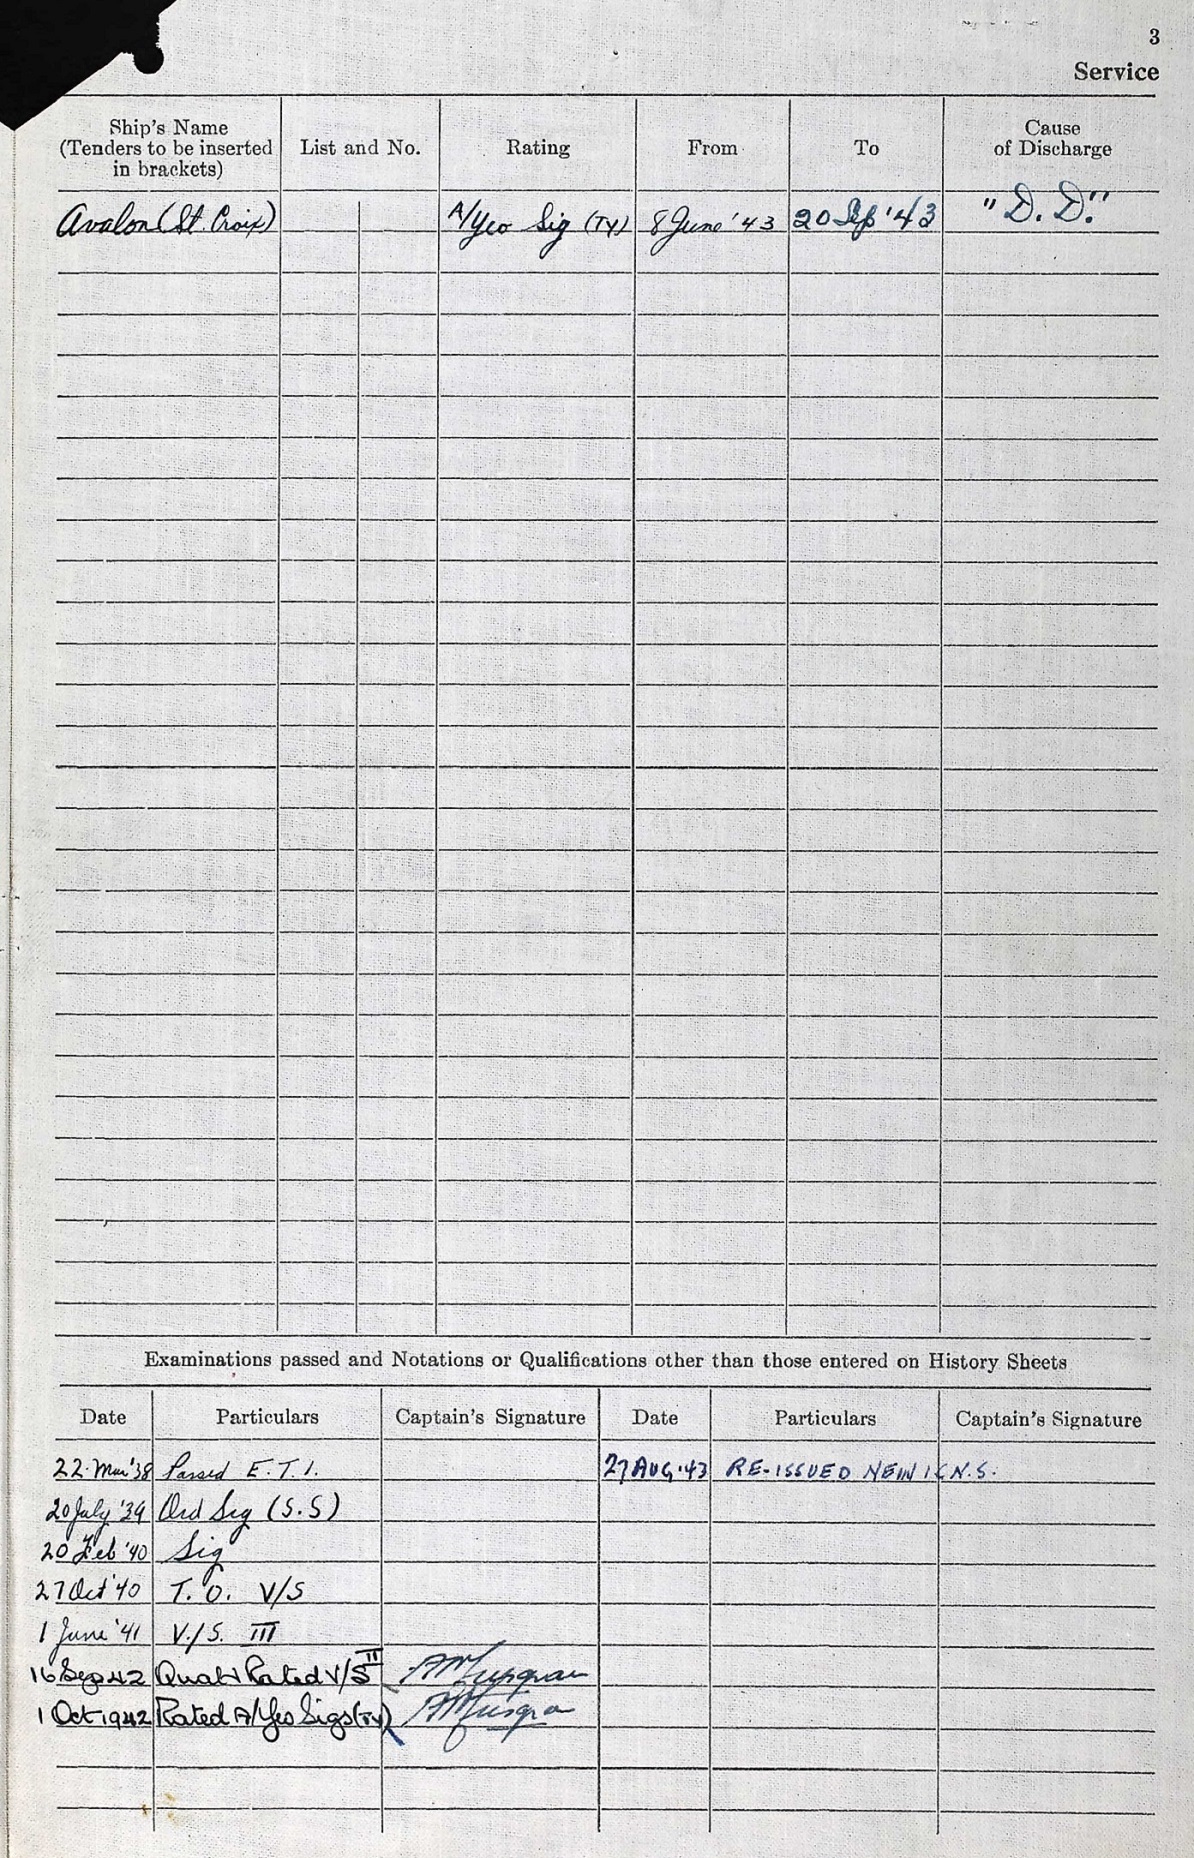 3
Service
Ship's Name
(Tenders to be inserted
in brackets)
List and No.
Rating
From
To
Cause
of Discharge
Avalon (St. Croix) A/Yeo Sig (Ty) 8 June '43 20 Sep '43 "D. D."
Examinations passed and Notations or Qualifications other than those entered on History Sheets
Date Particulars Captain's Signature Date Particulars Captain's Signature
22 Mar '38 Passed E.T.1. 27 AUG '43 RE-ISSUED NEW N.S.
20 July '39 Ord Sig (S.S)
20 Feb '40 Sig
27 Oct '40 T.O. V/S
1 June '41 V./S. III
16 Sep 42 Qual & Rated V/S II
1 Oct 1942 Rated A/Yeo Sigs (Ty)